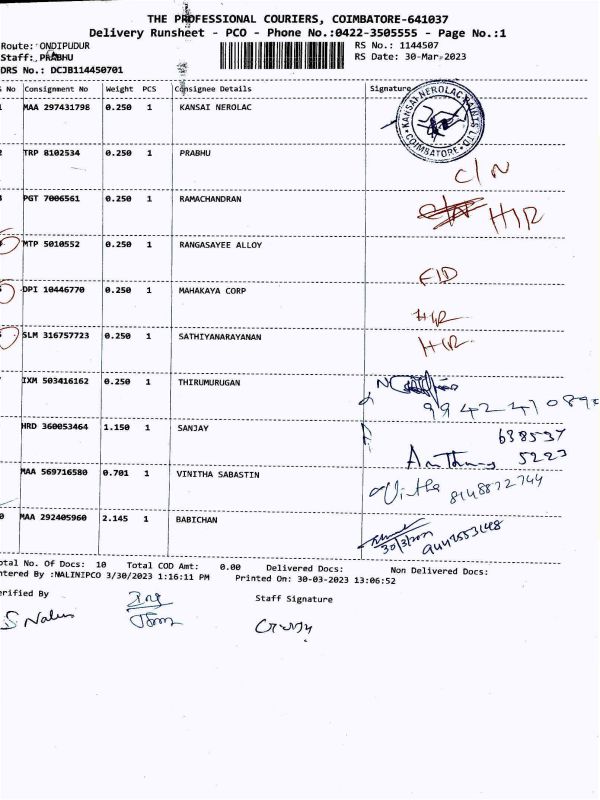 THE PROFESSIONAL COURIERS, COIMBATORE-641037
Delivery Runsheet - PCO - Phone No.:0422-3505555 - Page No.:1
Route: ONDIPUDUR RS No.: 1144507
Staff: PRABHU RS Date: 30-Mar-2023
DRS No.: DCJB114450701
No Consignment No Weight PCS Consignee Details Signature
MAA 297431798 0.250 1 KANSAI NEROLAC
KANSAI NEROLAC PAINTS LTD. COIMBATORE
TRP 8102534 0.250 1 PRABHU
C/N
PGT 7006561 0.250 1 RAMACHANDRAN
HIR
MTP 5010552 0.250 1 RANGASAYEE ALLOY
DPI 10446770 0.250 1 MAHAKAYA CORP
SLM 316757723 0.250 1 SATHIYANARAYANAN
IXM 503416162 0.250 1 THIRUMURUGAN
HRD 360053464 1.150 1 SANJAY
638537
5223
MAA 569716580 0.701 1 VINITHA SABASTIN
8148872744
MAA 292405960 2.145 1 BABICHAN
otal No. Of Docs: 10 Total COD Amt: 0.00 Delivered Docs: Non Delivered Docs:
ntered By :NALINIPCO 3/30/2023 1:16:11 PM Printed On: 30-03-2023 13:06:52
erified By Staff Signature